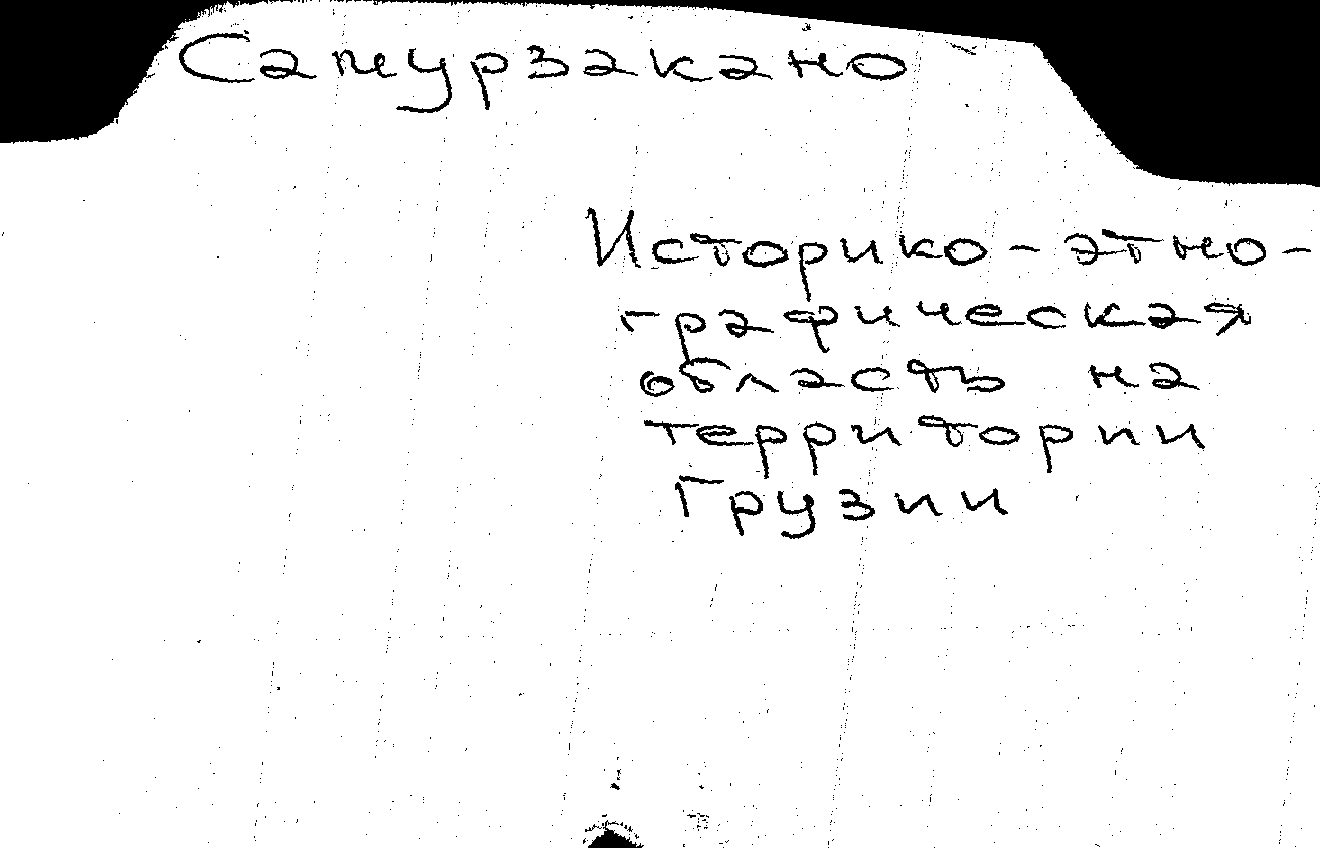 Самурзакано
Историко-этно-
графическая
область на
территории
Грузии